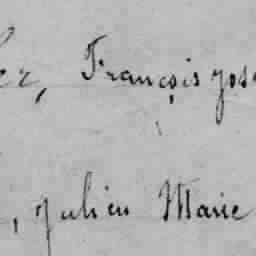 ez, François jos
, Julien Marie